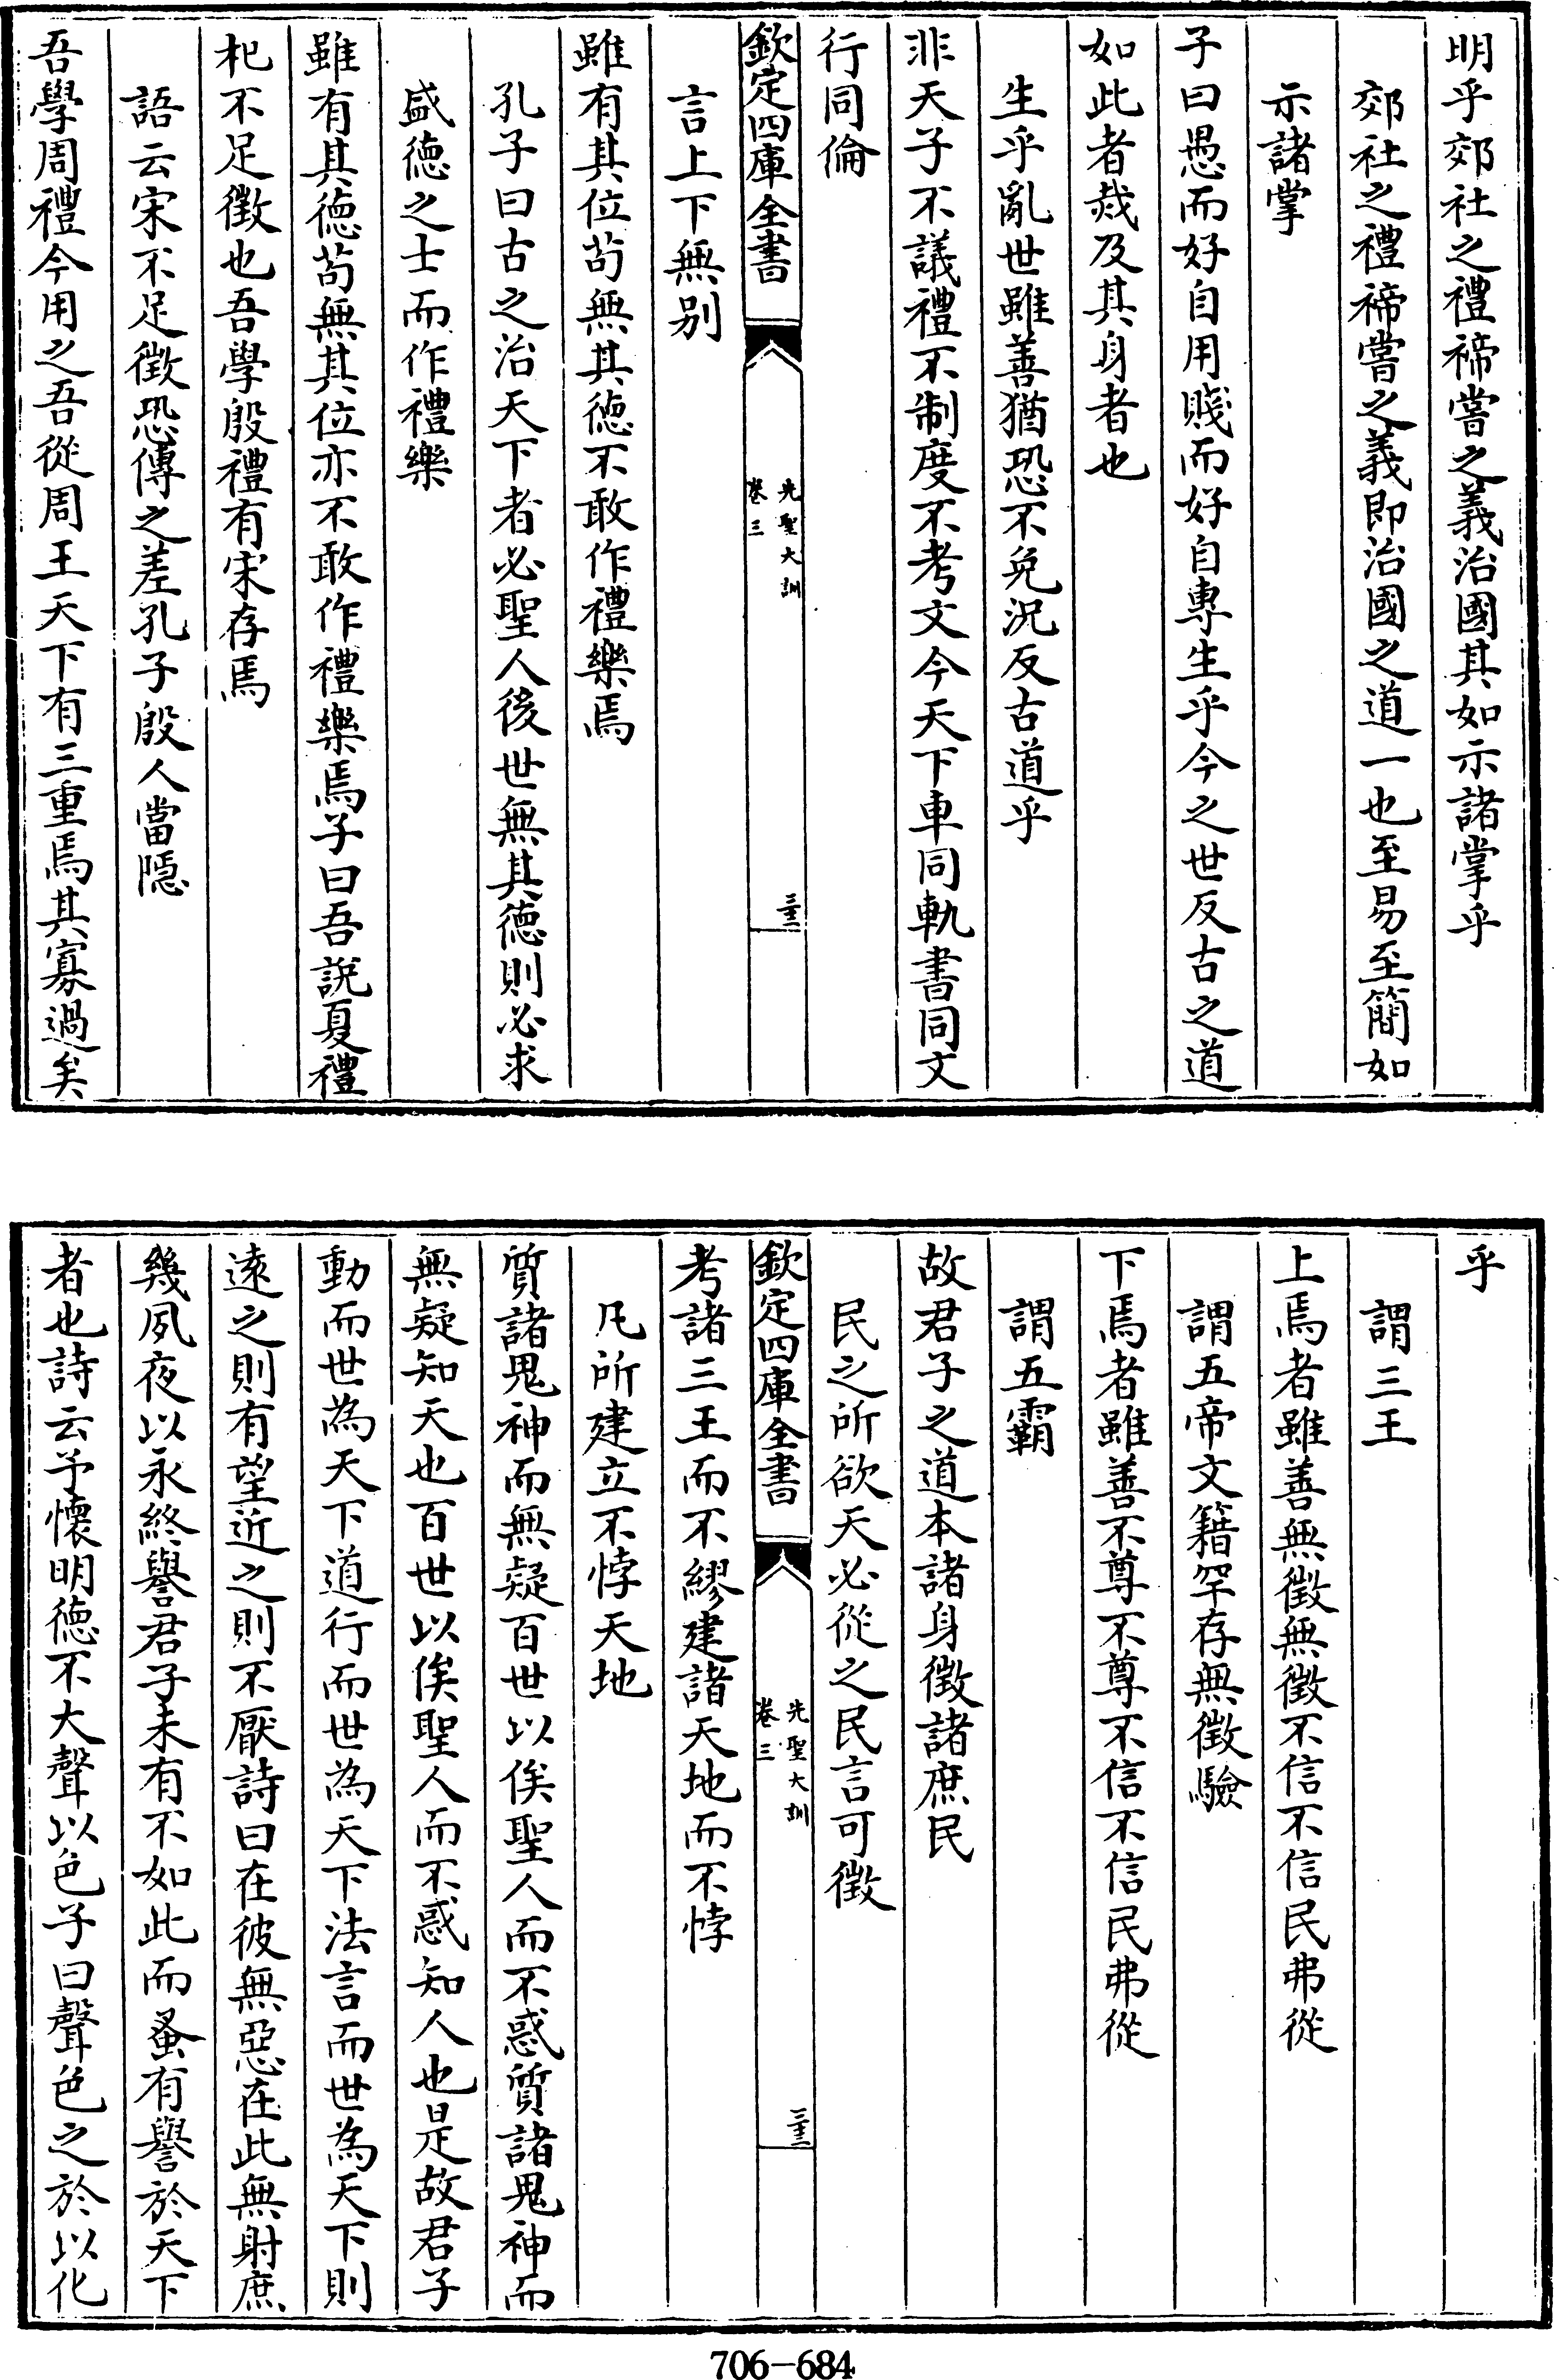 明乎郊社之禮禘嘗之義治國其如示諸掌乎
郊社之禮禘嘗之義即治國之道一也至易至簡如
示諸掌
子曰愚而好自用賤而好自專生乎今之世反古之道
如此者烖及其身者也
生乎亂世雖善猶恐不免況反古道乎
非天子不議禮不制度不考文今天下車同軌書同文
行同倫
欽定四庫全書
先聖大訓
卷三
三十三
言上下無别
雖有其位茍無其德不敢作禮樂焉
孔子曰古之治天下者必聖人後世無其德則必求
盛德之士而作禮樂
雖有其德茍無其位亦不敢作禮樂焉子曰吾說夏禮
杞不足徵也吾學殷禮有宋存焉
語云宋不足徵恐傳之差孔子殷人當隱
吾學周禮今用之吾從周王天下有三重焉其寡過矣
乎
謂三王
上焉者雖善無徵無徵不信不信民弗從
謂五帝文籍罕存無徵驗
下焉者雖善不尊不尊不信不信民弗從
謂五霸
故君子之道本諸身徵諸庶民
民之所欲天必從之民言可徵
欽定四庫全書
先聖大訓
卷三
三十三
考諸三王而不繆建諸天地而不悖
凡所建立不悖天地
質諸鬼神而無疑百世以俟聖人而不惑質諸鬼神而
無疑知天也百世以俟聖人而不惑知人也是故君子
動而世為天下道行而世為天下法言而世為天下則
遠之則有望近之則不厭詩曰在彼無惡在此無射庶
幾夙夜以永終譽君子未有不如此而蚤有譽於天下
者也詩云予懷明德不大聲以色子曰聲色之於以化
706-684